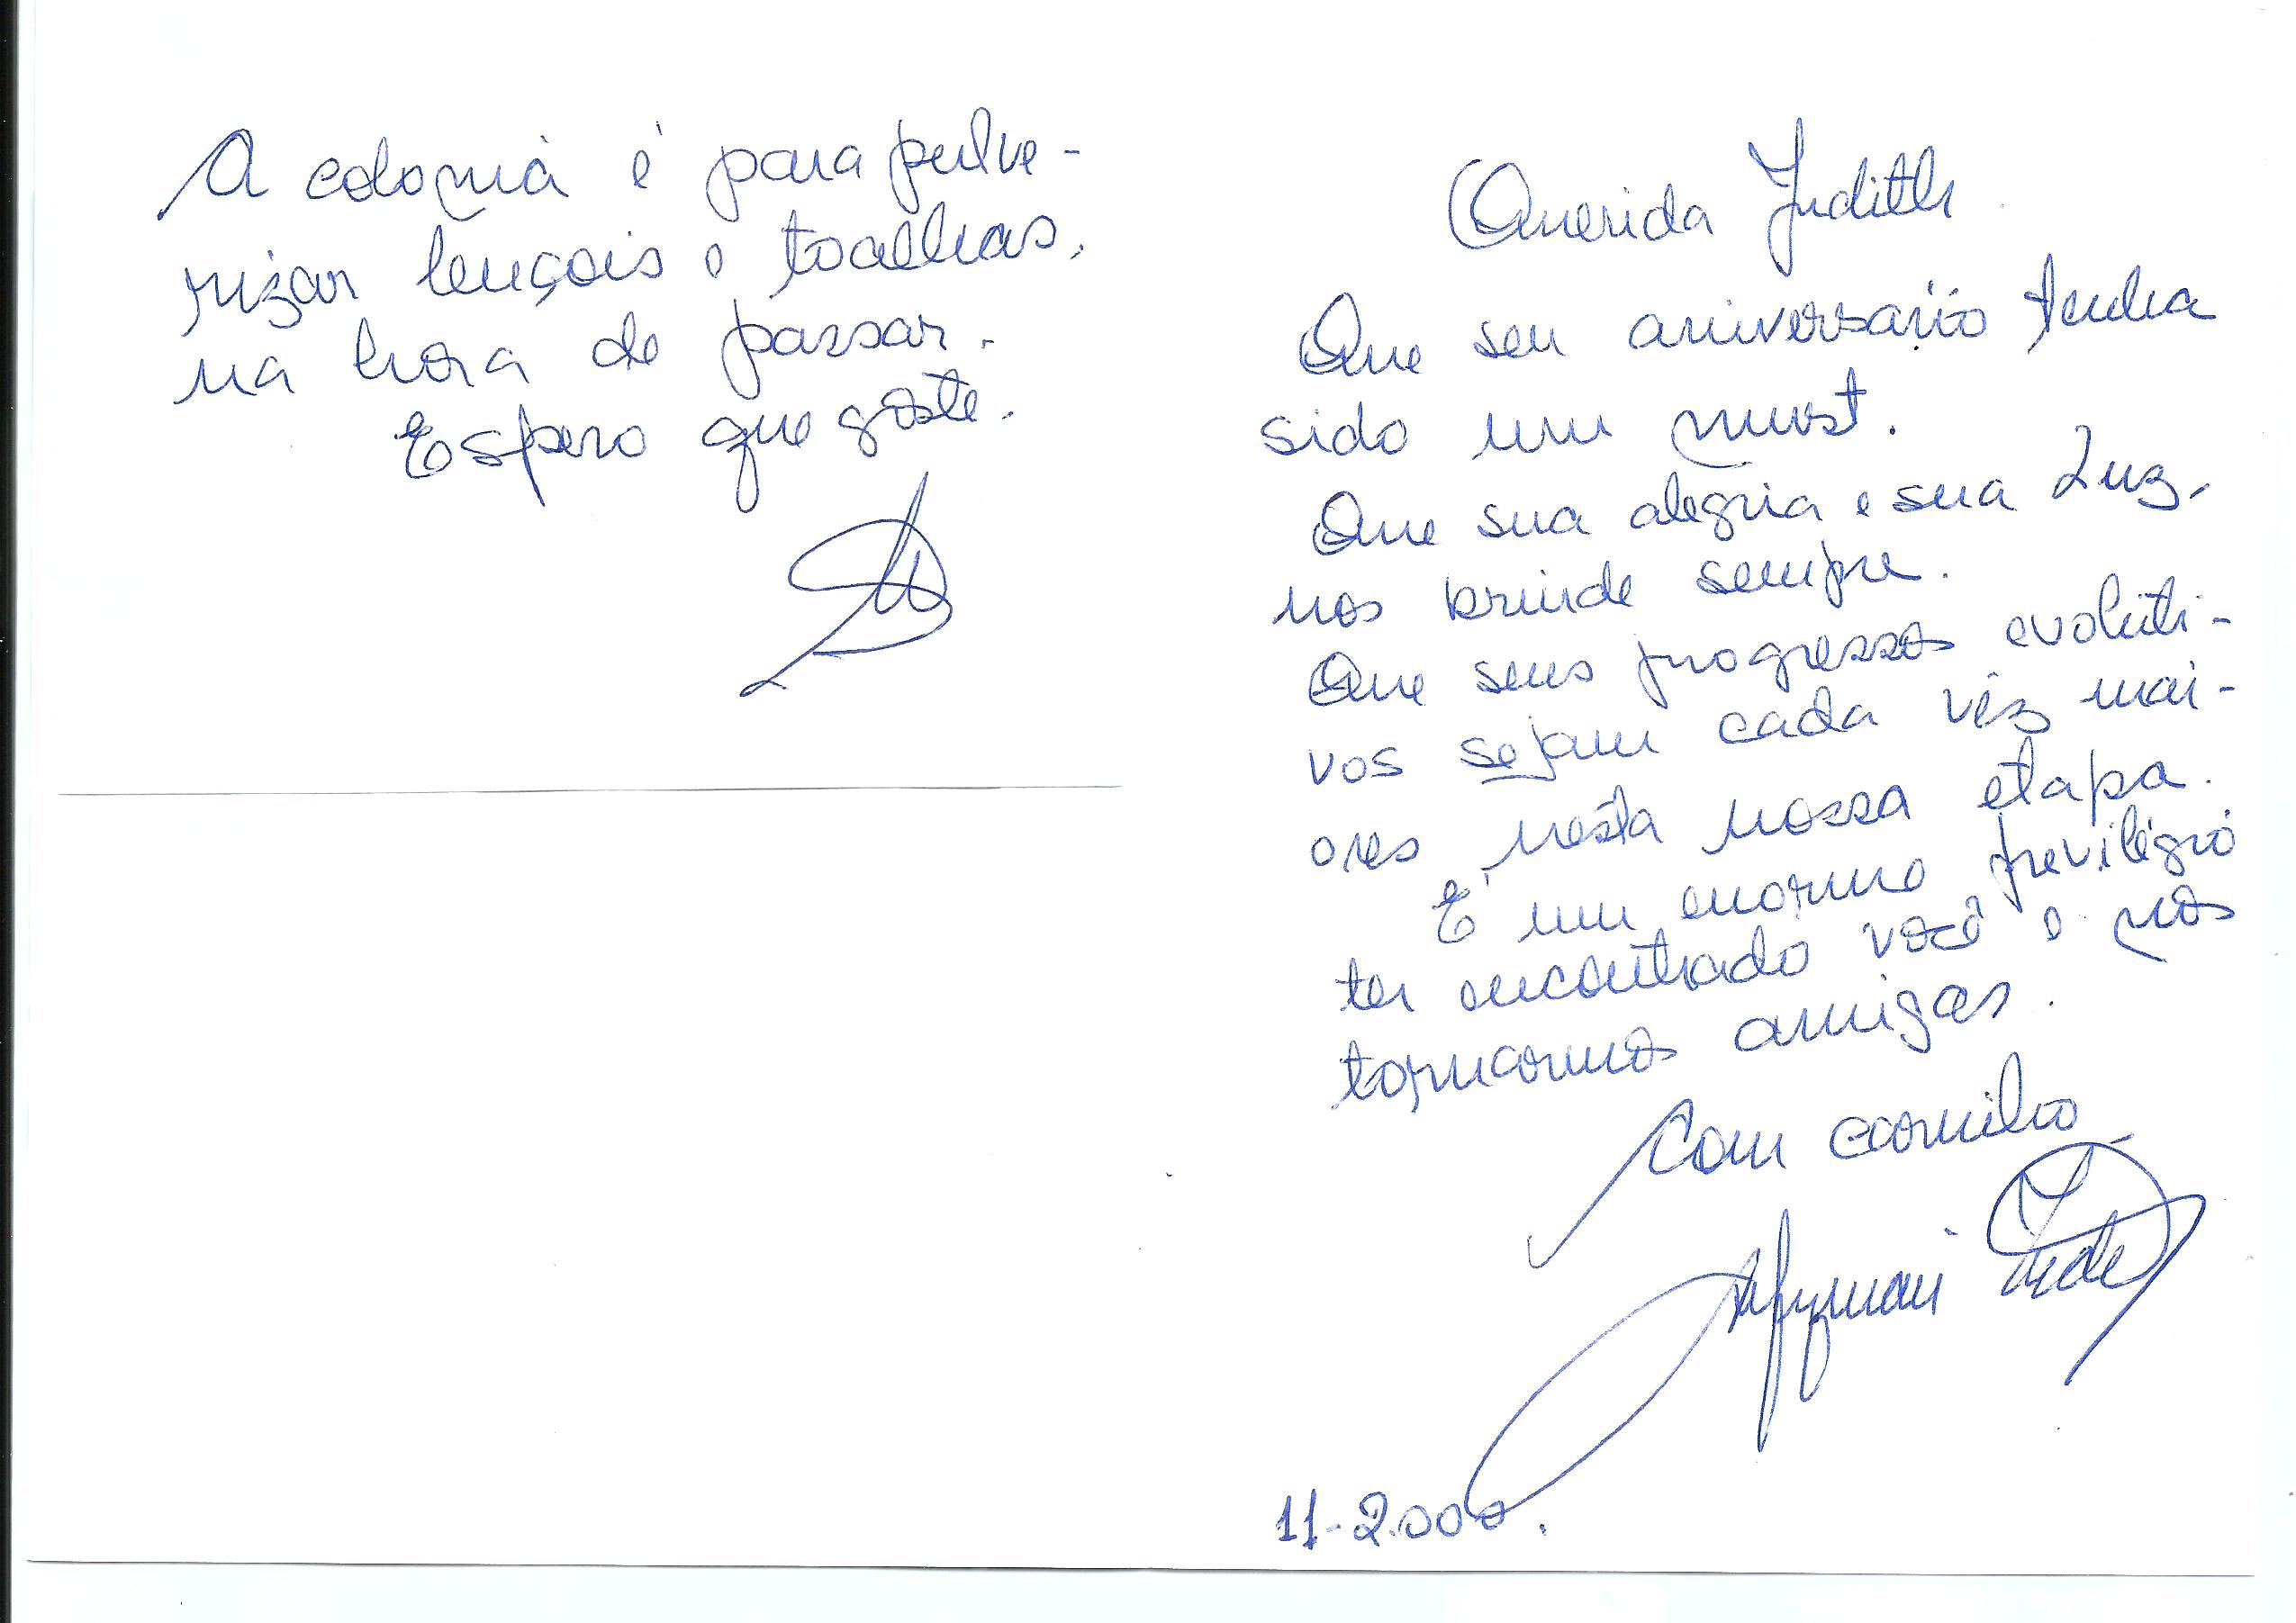 A colonia é para pulve-
rizar lençois e toalhas,
na hora de passar.
Espero que goste.
Querida Judith
Que seu aniversario tenha
sido um must.
Que sua alegria e sua Luz,
nos brinde sempre.
Que seus progressos evoluti-
vos sejam cada vêz mai-
ores nesta nossa etapa.
É um enorme previlégio
ter encontrado você e nos
tornarmos amigas.
Com carinho
11-2.000.